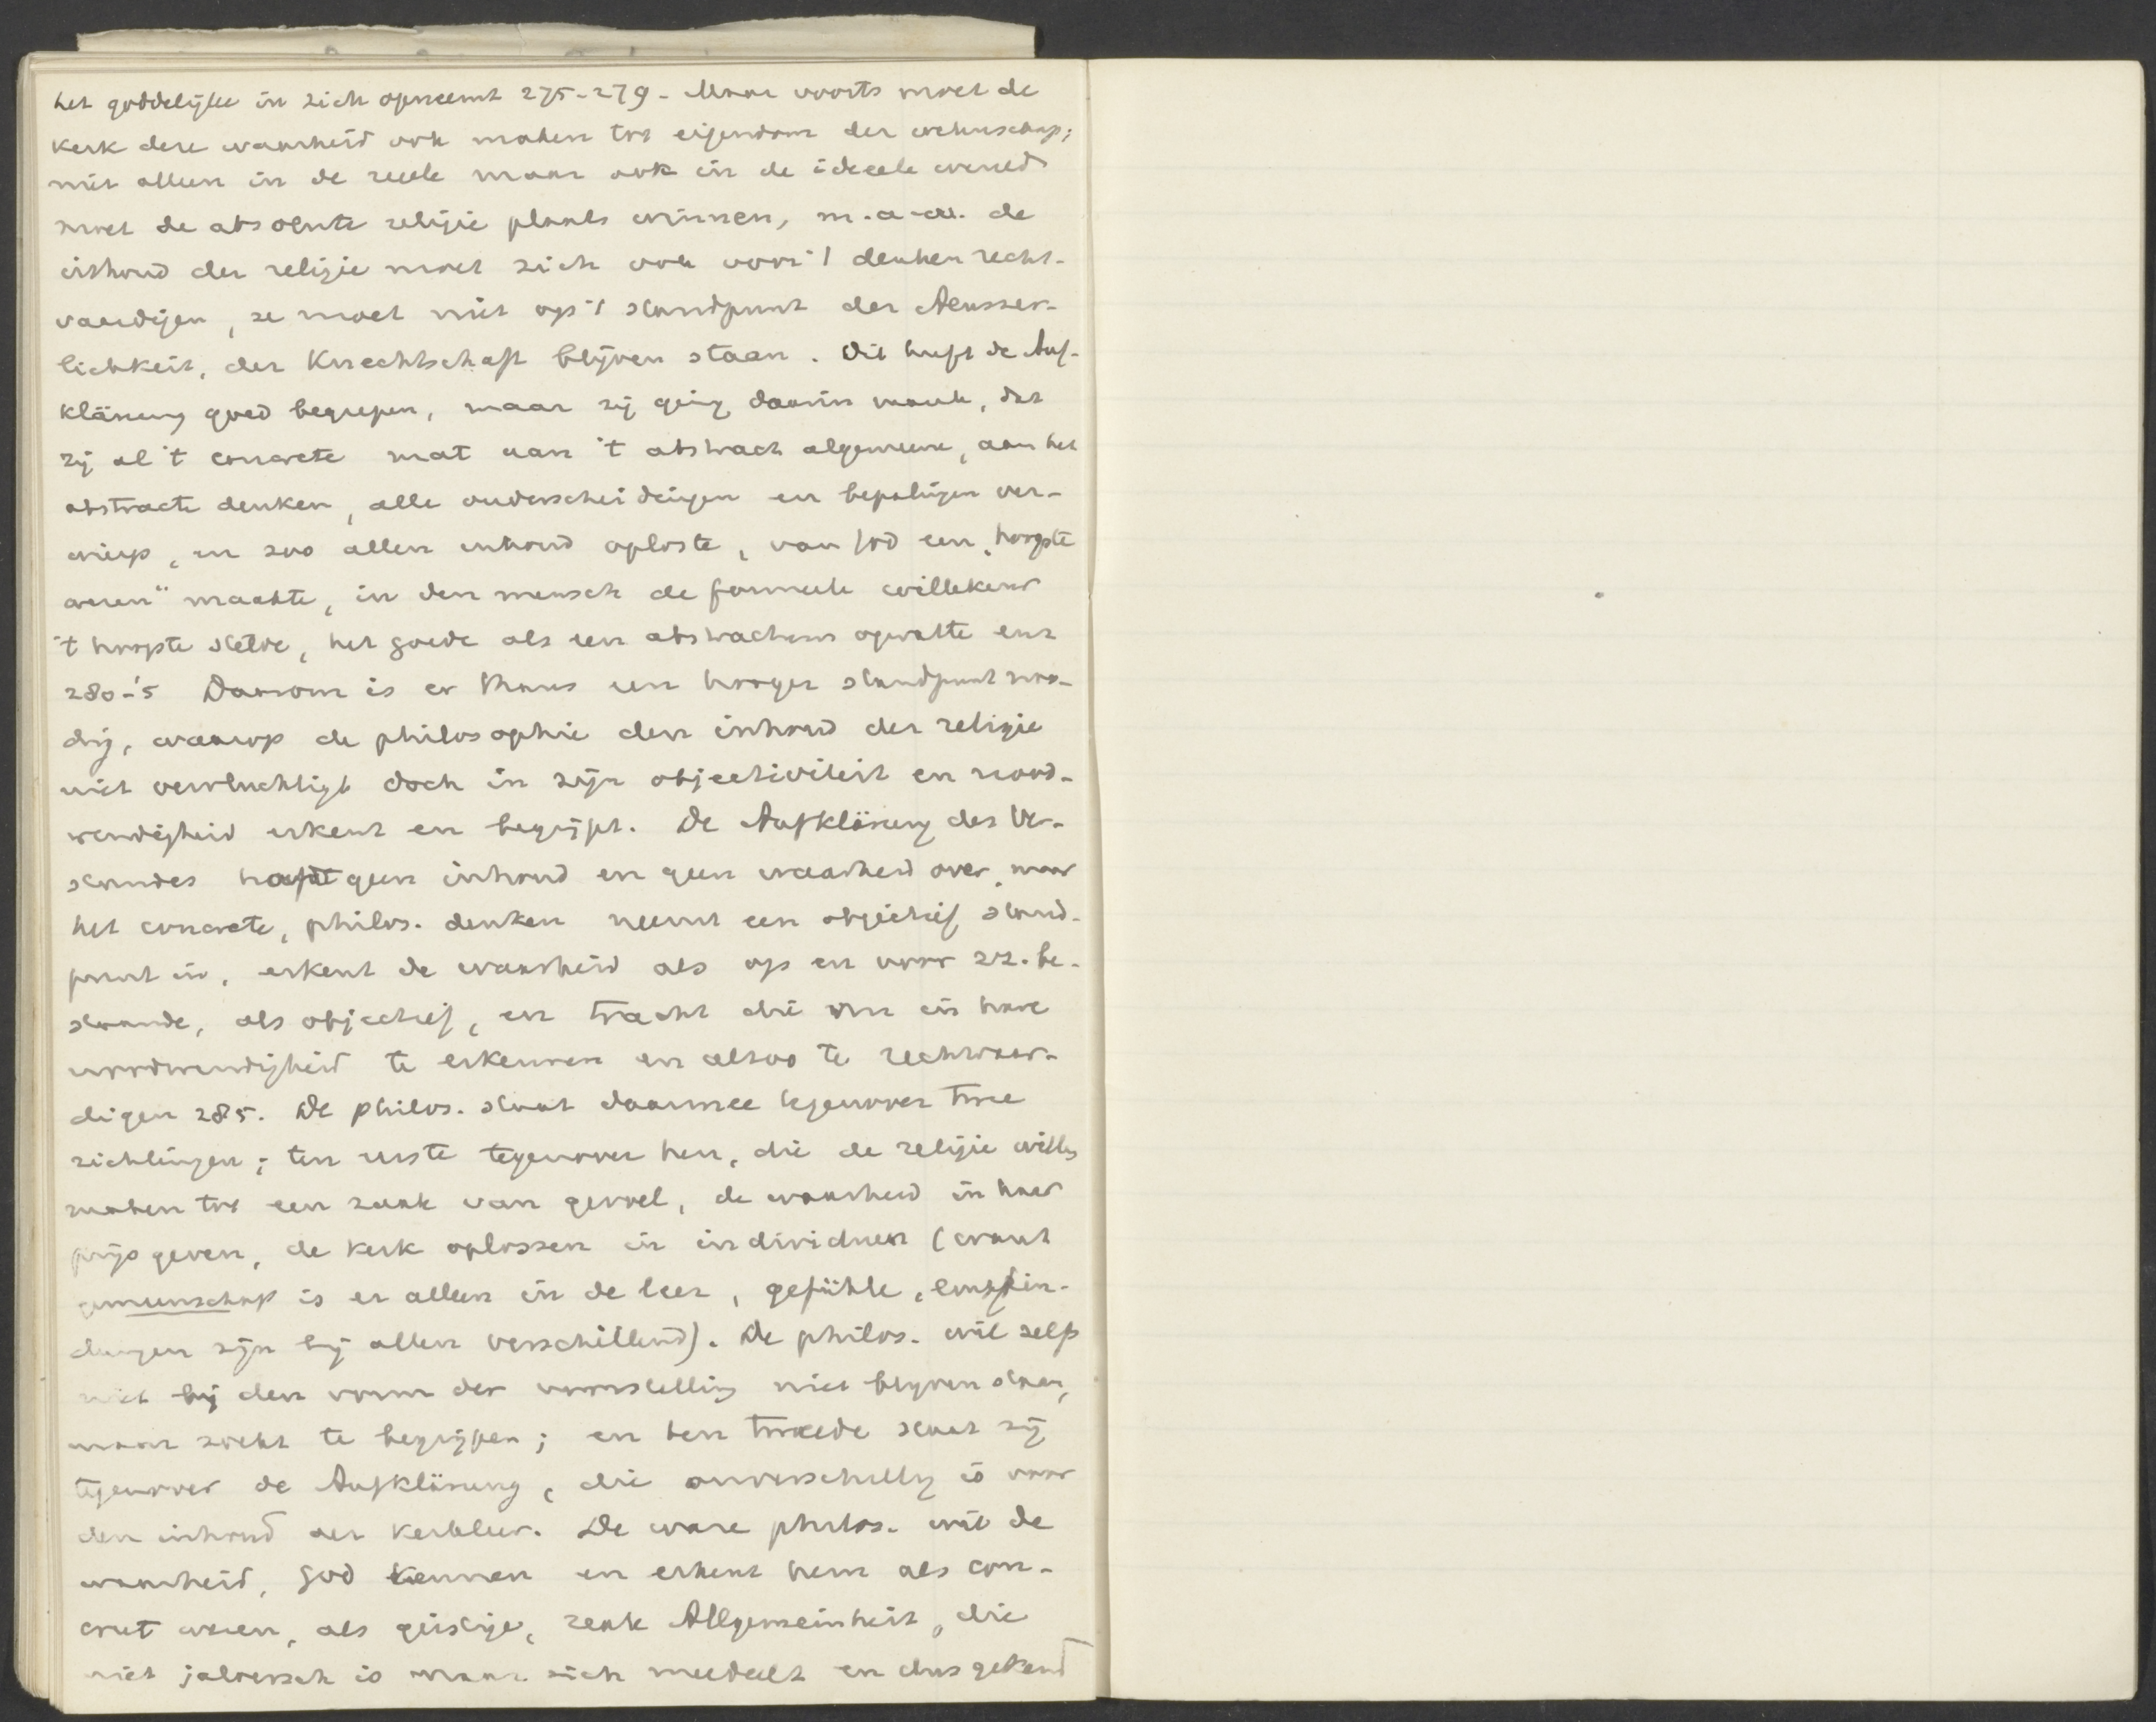 het goddelijke in zich opneemt 275-279 - Maar voorts moet de
kerk deze waarheid ook maken tot eigendom der wetenschap;
niet alleen in de reële maar ook in de ideeele wereld
moet de absolute religie plaats winnen, m.a.w. de
inhoud der religie moet zich ook voor 't denken recht-
vaardigen, ze moet niet op 't standpunt der Aeusser-
lichkeit, der Knechtschaft blijven staan. Dit heeft de Auf-
klärung goed begrepen, maar zij ging daarin mank, dat
zij al 't concrete mat aan 't abstract algemeene, aan het
abstracte denken, alle onderscheidingen en bepalingen ver-
wierp, en zoo allen inhoud oploste, van God een „hoogste
wezen" maakte, in den mensch de formeele willekeur
't hoogste stelde, het goede als een abstractum opvatte enz
280-'5 Daarom is er thans een hooger standpunt noo-
dig, waarop de philosophie den inhoud der religie
niet vervluchtigt doch in zijn objectiviteit en nood-
wendigheid erkent en begrijpt. De Aufklärung des Ver-
standes houdt geen inhoud en geen waarheid over, maar
het concrete, philos. denken neemt een objectief stand-
punt in, erkent de waarheid als op en voor zz. be-
staande, als objectief, en tracht die nu in hare
noodwendigheid te erkennen en alzoo te rechtvaar-
digen 285. De philos. staat daarmee tegenover twee
richtingen; ten eerste tegenover hen, die de religie willen
maken tot een zaak van gevoel, de waarheid in haar
prijs geven, de kerk oplossen in individuen (want
gemeenschap is er alleen in de leer, gefühle, empfin-
dungen zijn bij allen verschillend). De philos. wil zelf
niet bij den vorm der voorstelling niet blijven staan,
maar zoekt te begrijpen; en ten tweede staat zij
tegenover de Aufklärung, die onverschillig is voor
den inhoud der kerkleer. De ware philos. wil de
waarheid, God kennen en erkent hem als con-
creet wezen, als geistige, reale Allgemeinheit, die
niet jaloersch is maar zich meedeelt en dus gekend